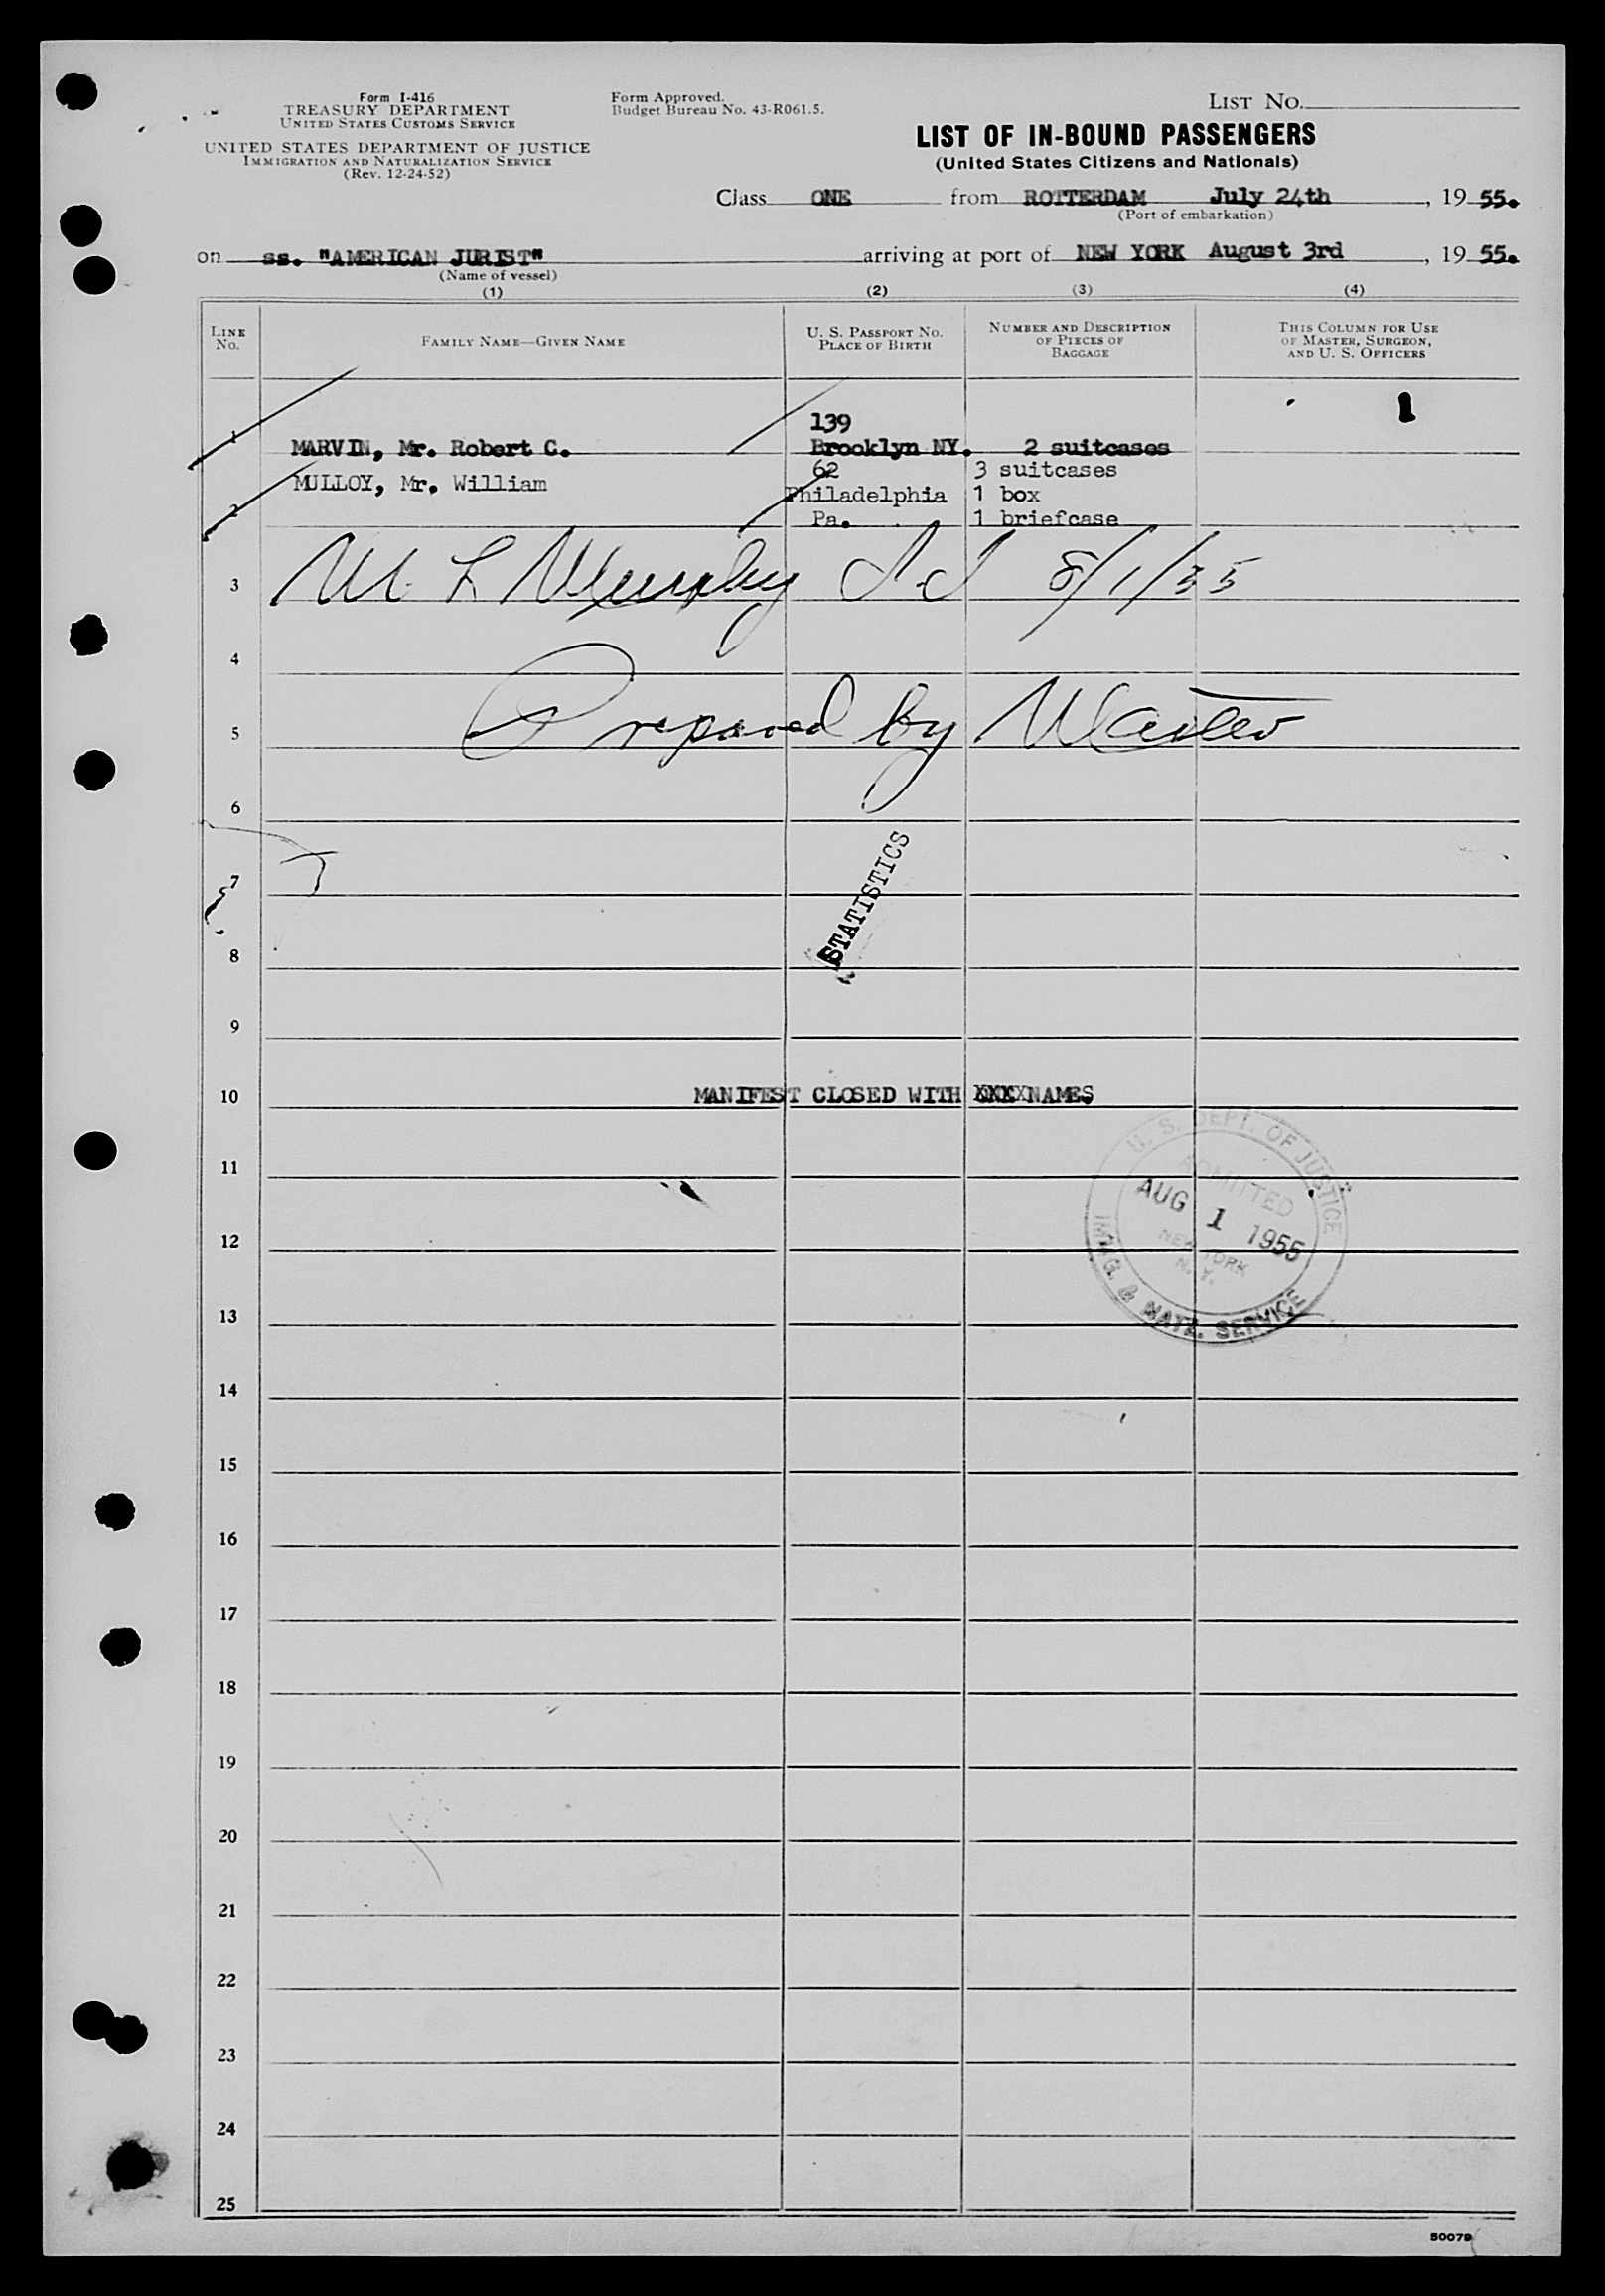 Form I-416
TREASURY DEPARTMENT
UNITED STATES CUSTOMS SERVICE
UNITED STATES DEPARTMENT OF JUSTICE
IMMIGRATION AND NATURALIZATION SERVICE
(Rev. 12-24-52)
Form Approved.
Budget Bureau No. 43-R061.5.
LIST NO.
LIST OF IN-BOUND PASSENGERS
(United States Citizens and Nationals)
Class ONE from ROTTERDAM July 24th, 1955.
(Port of embarkation)
on ss. "AMERICAN JURIST" arriving at port of NEW YORK August 3rd, 1955.
(Name of vessel)
(1) (2) (3) (4)
LINE No. FAMILY NAME—GIVEN NAME U. S. PASSPORT NO. PLACE OF BIRTH NUMBER AND DESCRIPTION OF PIECES OF BAGGAGE THIS COLUMN FOR USE OF MASTER, SURGEON, AND U. S. OFFICERS
139
1 MARVIN, Mr. Robert C. Brooklyn NY. 2 suitcases
62 3 suitcases
MULLOY, Mr. William Philadelphia 1 box
2 Pa. 1 briefcase
3 M L Murphy 8/1/55
4
5 Prepared by Master
6
7
STATISTICS
8
9
10 MANIFEST CLOSED WITH XXXX NAMES
11
12
13
U. S. DEPT. OF JUSTICE
ADMITTED
AUG 1 1955
NEW YORK
N. Y.
IMMIG. & NATZ. SERVICE
14
15
16
17
18
19
20
21
22
23
24
25
50079